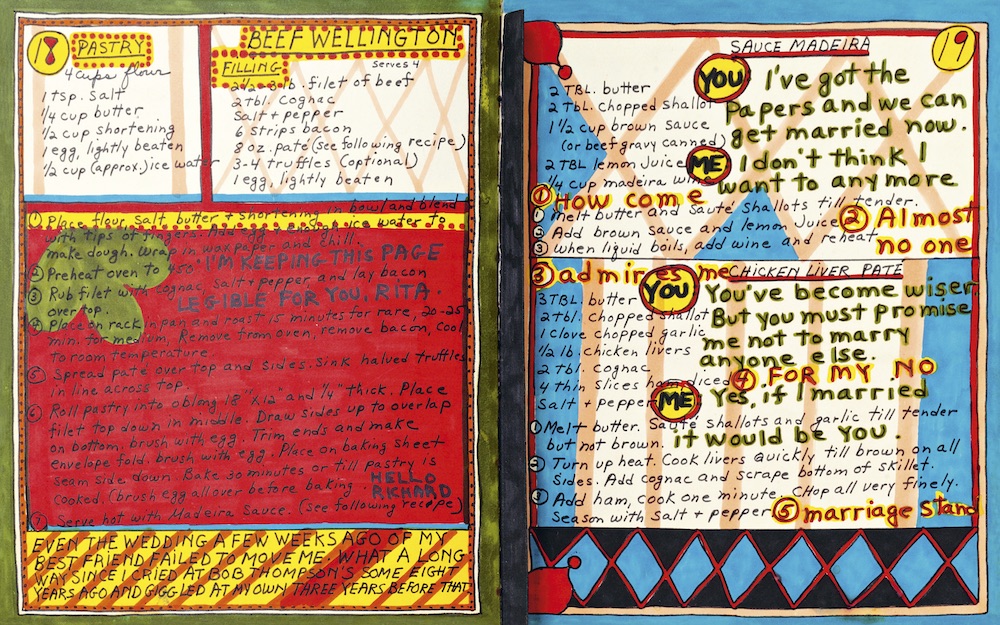 18
PASTRY
4 cups flour
1 tsp. salt
1/4 cup butter
1/2 cup shortening
1 egg, lightly beaten
1/2 cup (approx.) ice water
BEEF WELLINGTON
FILLING
Serves 4
2 1/2-3 lb. filet of beef
2 tbl. Cognac
Salt + pepper
6 strips bacon
8 oz. paté (see following recipe)
3-4 truffles (optional)
1 egg, lightly beaten
① Place flour, salt, butter + shortening in bowl and blend
with tips of fingers. Add egg + enough ice water to
make dough. Wrap in wax paper and chill.
② Preheat oven to 450°
I'M KEEPING THIS PAGE
③ Rub filet with cognac, Salt + pepper and lay bacon
over top.
LEGIBLE FOR YOU, RITA.
④ Place on rack in pan and roast 15 minutes for rare, 20-25
min. for medium. Remove from oven, remove bacon, cool
to room temperature.
⑤ Spread paté over top and sides. Sink halved truffles
in line across top.
⑥ Roll pastry into oblong 18" x 12" and 1/4" thick. Place
filet top down in middle. Draw sides up to overlap
on bottom. brush with egg. Trim ends and make
envelope fold. brush with egg. Place on baking sheet
seam side down. Bake 30 minutes or till pastry is
cooked. (brush egg all over before baking.
HELLO
RICHARD
⑦ Serve hot with Madeira Sauce. (see following recipe)
EVEN THE WEDDING A FEW WEEKS AGO OF MY
BEST FRIEND FAILED TO MOVE ME. WHAT A LONG
WAY SINCE I CRIED AT BOB THOMPSON'S SOME EIGHT
YEARS AGO AND GIGGLED AT MY OWN THREE YEARS BEFORE THAT.
19
SAUCE MADEIRA
2 TBL. butter
2 Tbl. chopped shallot
1 1/2 cup brown sauce
(or beef gravy canned)
2 TBL lemon juice
1/4 cup madeira wine
YOU I've got the
Papers and we can
get married now.
ME I don't think I
want to any more
① How come
① Melt butter and Sauté shallots till tender.
② Add brown sauce and lemon Juice
③ When liquid boils, add wine and reheat
② Almost
no one
③ admires me
CHICKEN LIVER PATÉ
3 TBL. butter
2 tbl. chopped shallot
1 Clove chopped garlic
1/2 lb. chicken livers
2 tbl. Cognac
4 thin slices ham, diced
Salt + pepper
YOU You've become wiser
But you must promise
me not to marry
anyone else.
④ FOR MY NO
ME Yes, if I married
it would be YOU.
① Melt butter. Sauté shallots and garlic till tender
but not brown.
② Turn up heat. Cook livers quickly till brown on all
Sides. Add cognac and scrape bottom of skillet.
Add ham, cook one minute. CHop all very finely.
Season with salt + pepper
⑤ marriage stand